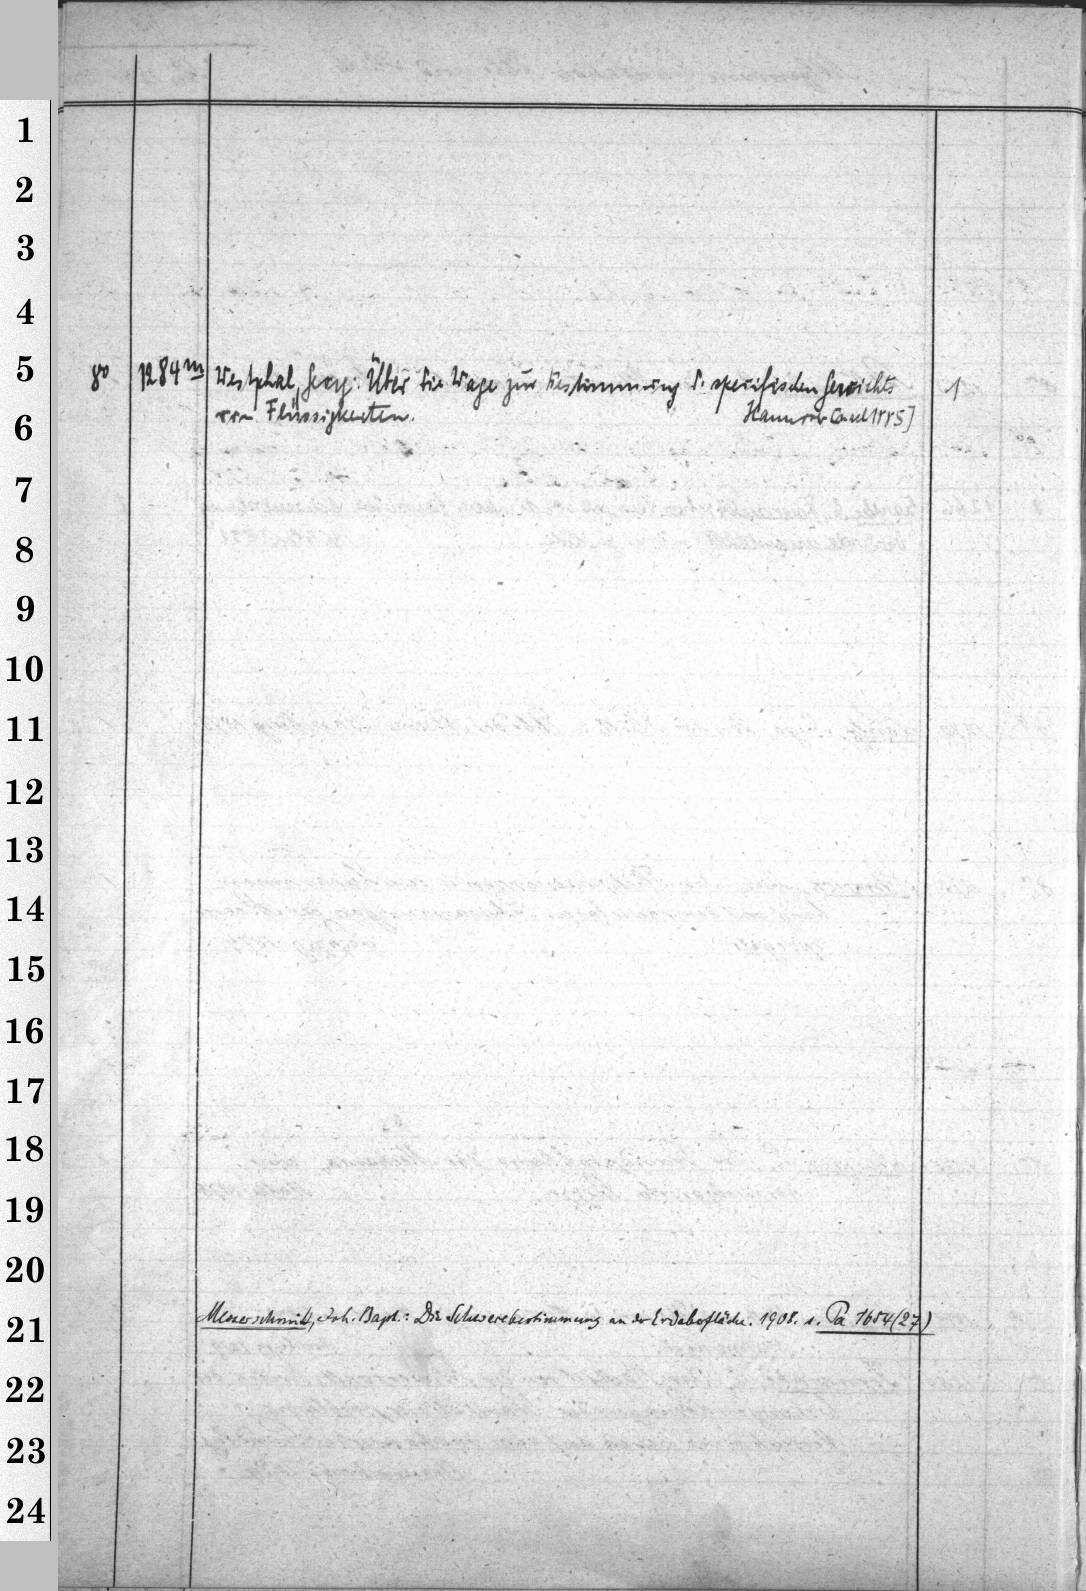 1
2
3
4
5
8o 1284m Westphal, Georg: Über die Wage zur Bestimmung d. specifischen Gewichts 1
6
von Flüssigkeiten. Hannover
7
8
9
10
11
12
13
14
15
16
17
18
19
20
21
Messerschmitt, Joh. Bapt.: Die Schwerebestimmung an der Erdoberfläche. 1908. s. Pa 1654(27)
22
23
24